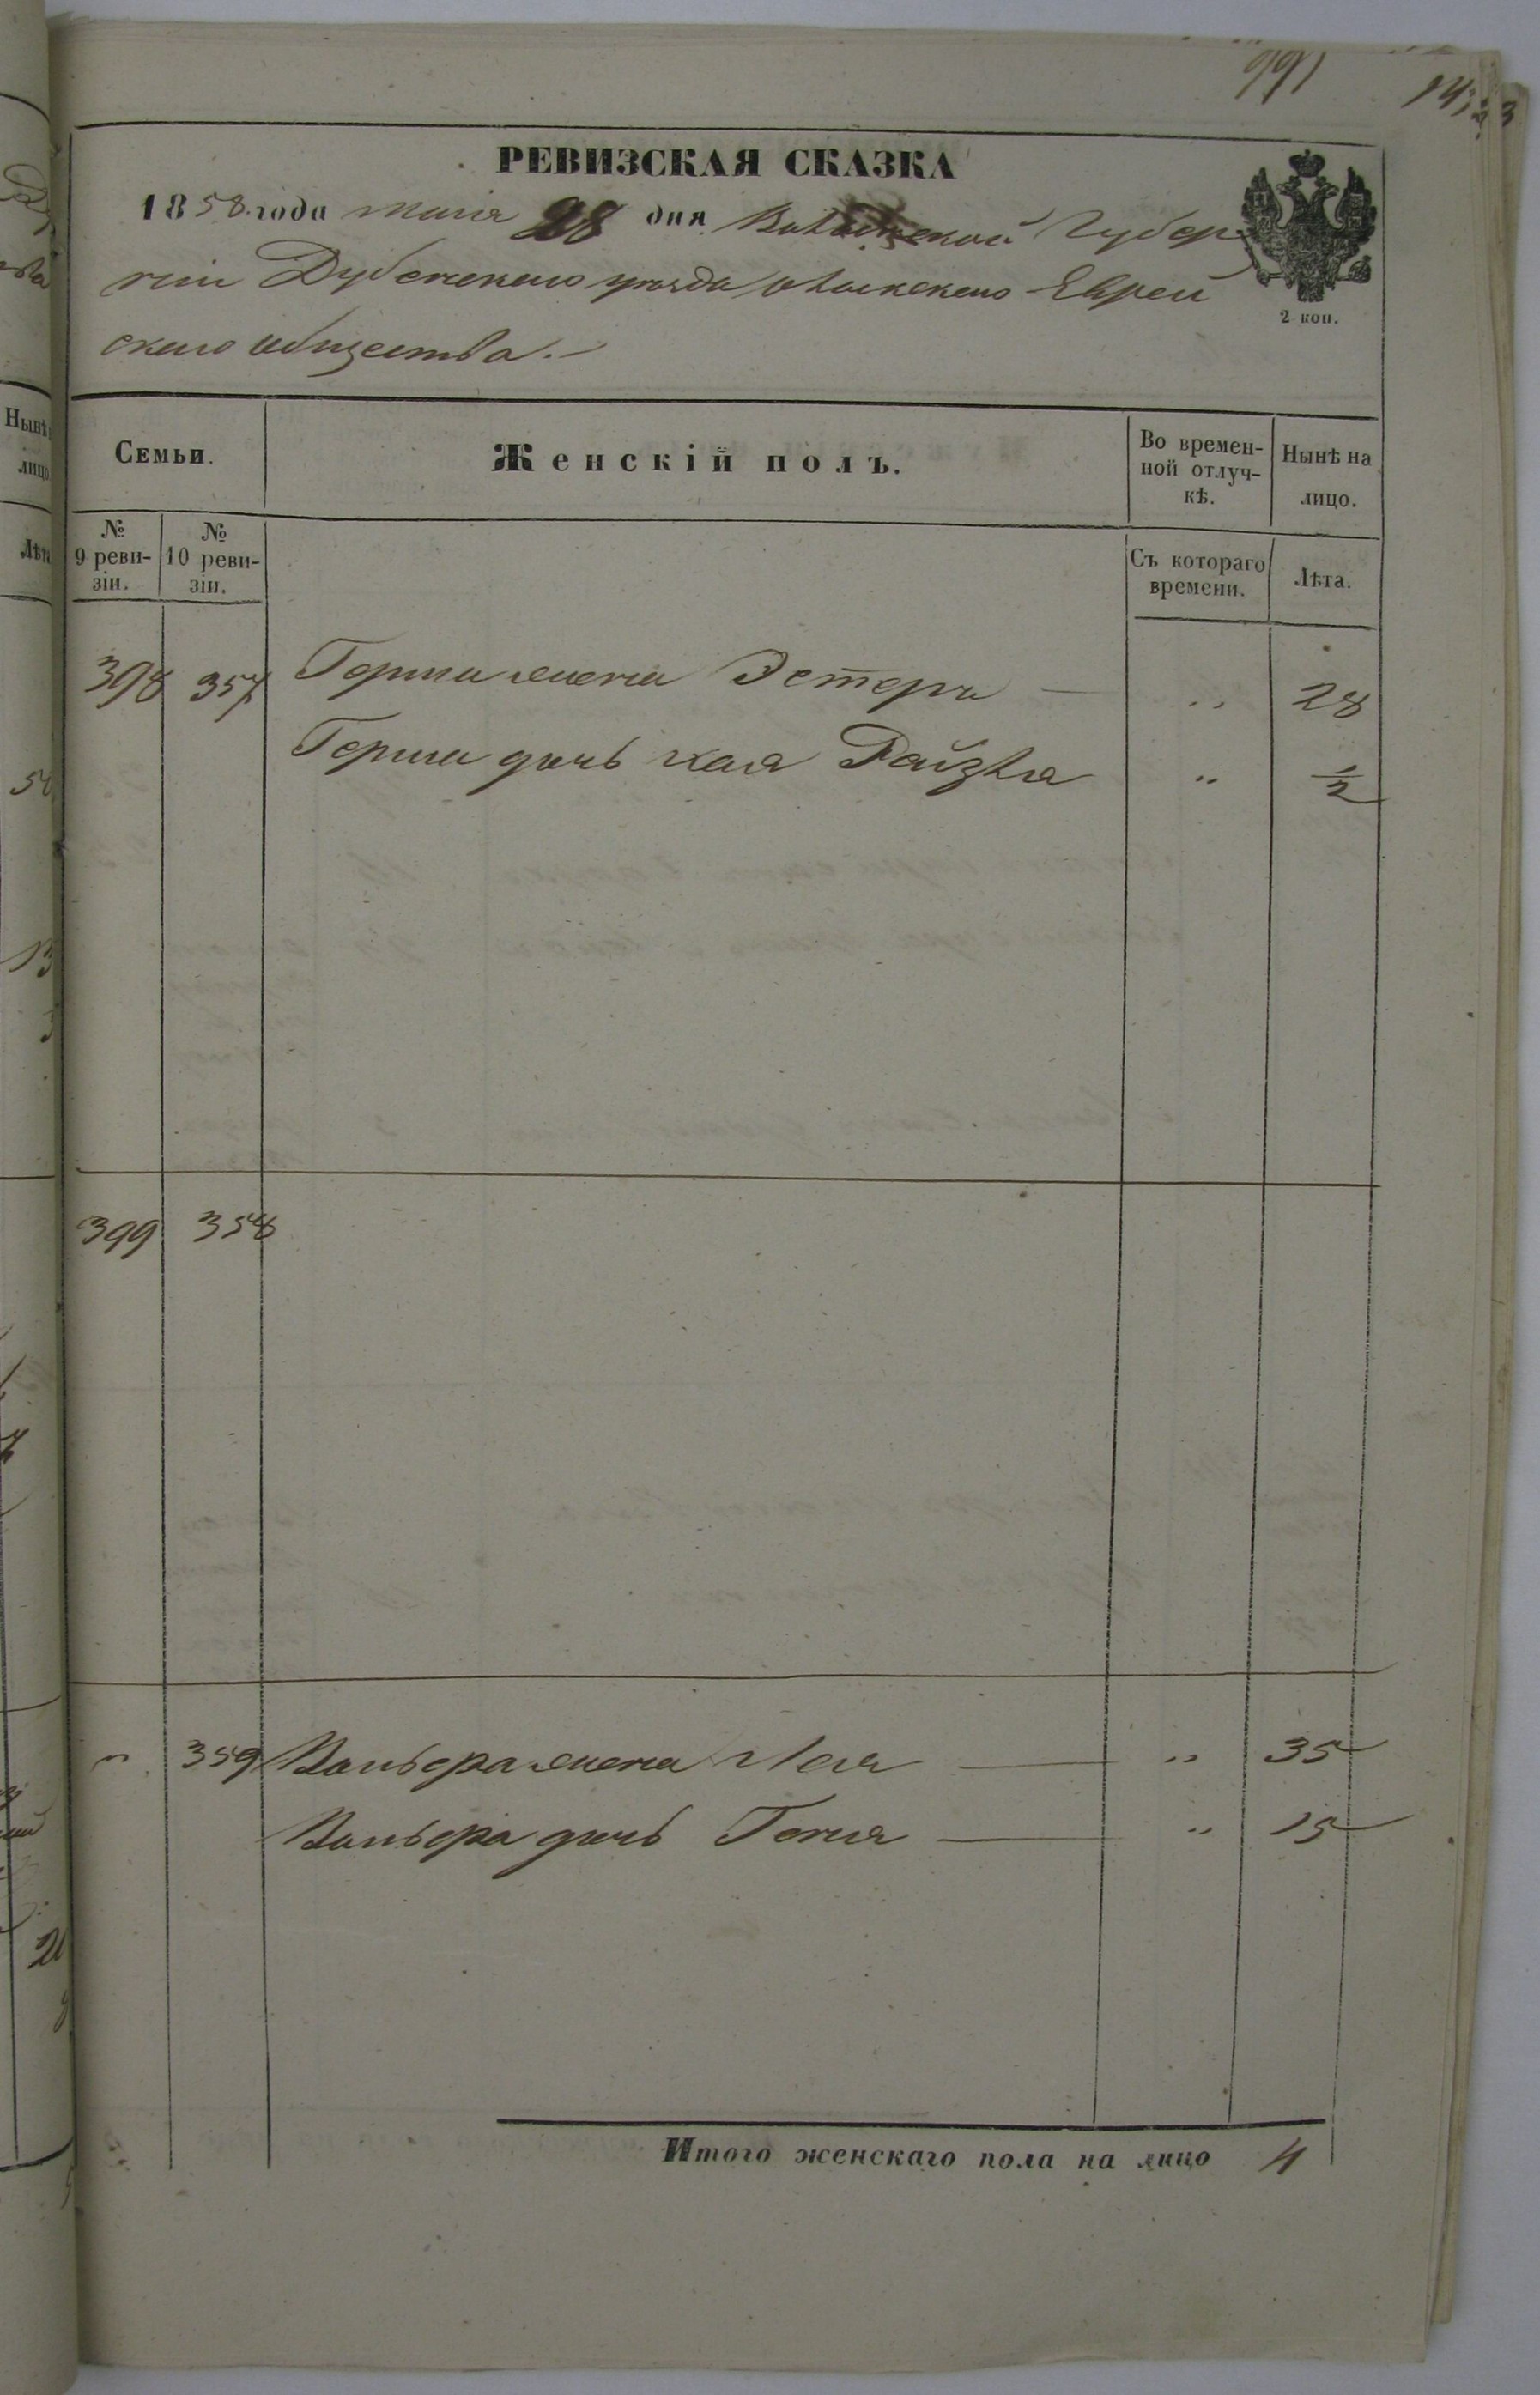 991
РЕВИЗСКАЯ СКАЗКА
1858 года Мaiя 28 дня Волынской Губер
ніи Дубенскаго уѣзда Олыкскаго Еврей
скаго общества.
2 коп.
Семьи.
Женскій полъ.
Во времен-
ной отлуч-
кѣ.
Нынѣ на
лицо.
№
9 реви-
зіи.
№
10 реви-
зіи.
Съ котораго
времени.
Лѣта.
398 357 Герша жена Эстера — „ 28
Герша дочь Хая Райзля „ 1/2
399 358
„ 359 Вольфа жена Лея — „ 35
Вольфа дочь Геня — „ 15
Итого женскаго пола на лицо 4